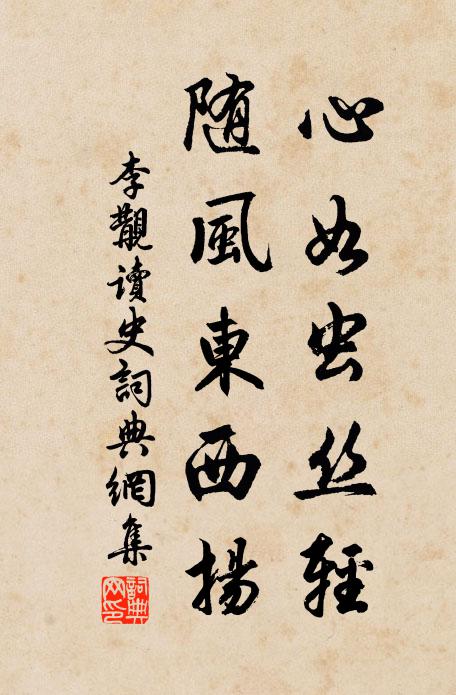 心如虫丝轻
随風東西揚
李觀讀史詞典網集
詞典網印